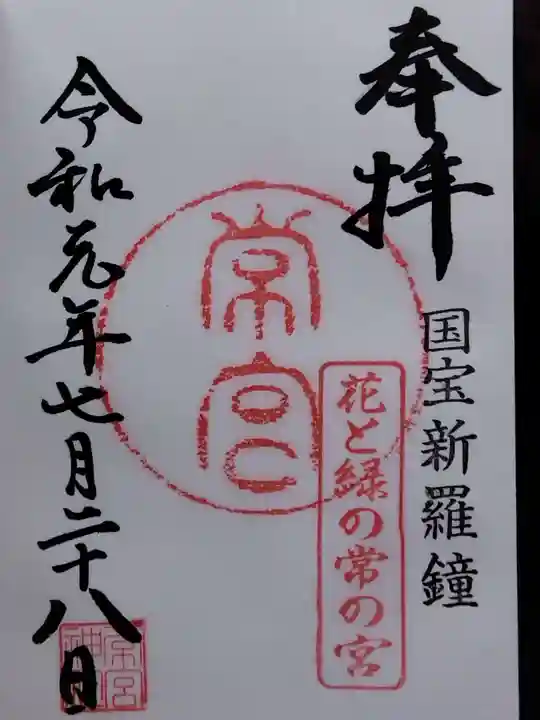 奉拝
国宝新羅鐘
花と緑の常の宮
常宮
令和元年七月二十八日
常宮神社